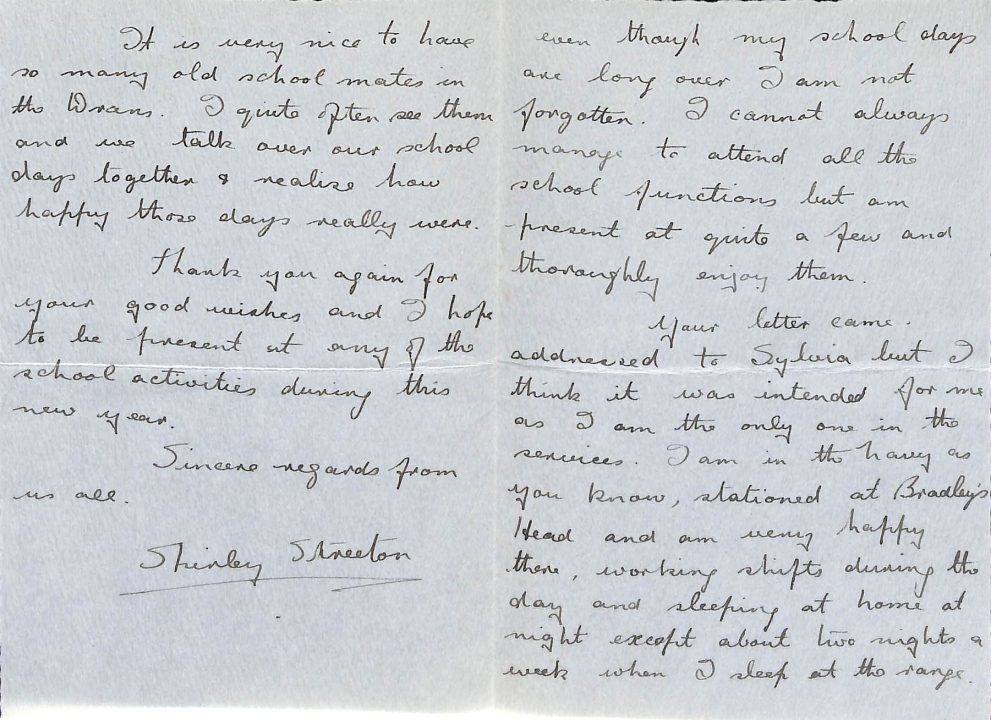 It is very nice to have
so many old school mates in
the Wrans. I quite often see them
and we talk over our school
days together & realise how
happy those days really were.
Thank you again for
your good wishes and I hope
to be present at any of the
school activities during this
new year.
Sincere regards from
us all.
Shirley Streeton
even though my school days
are long over I am not
forgotten. I cannot always
manage to attend all the
school functions but am
present at quite a few and
thoroughly enjoy them.
Your letter came.
addressed to Sylvia but I
think it was intended for me
as I am the only one in the
services. I am in the navy as
you know, stationed at Bradley's
Head and am very happy
there, working shifts during the
day and sleeping at home at
night except about two nights a
week when I sleep at the range.